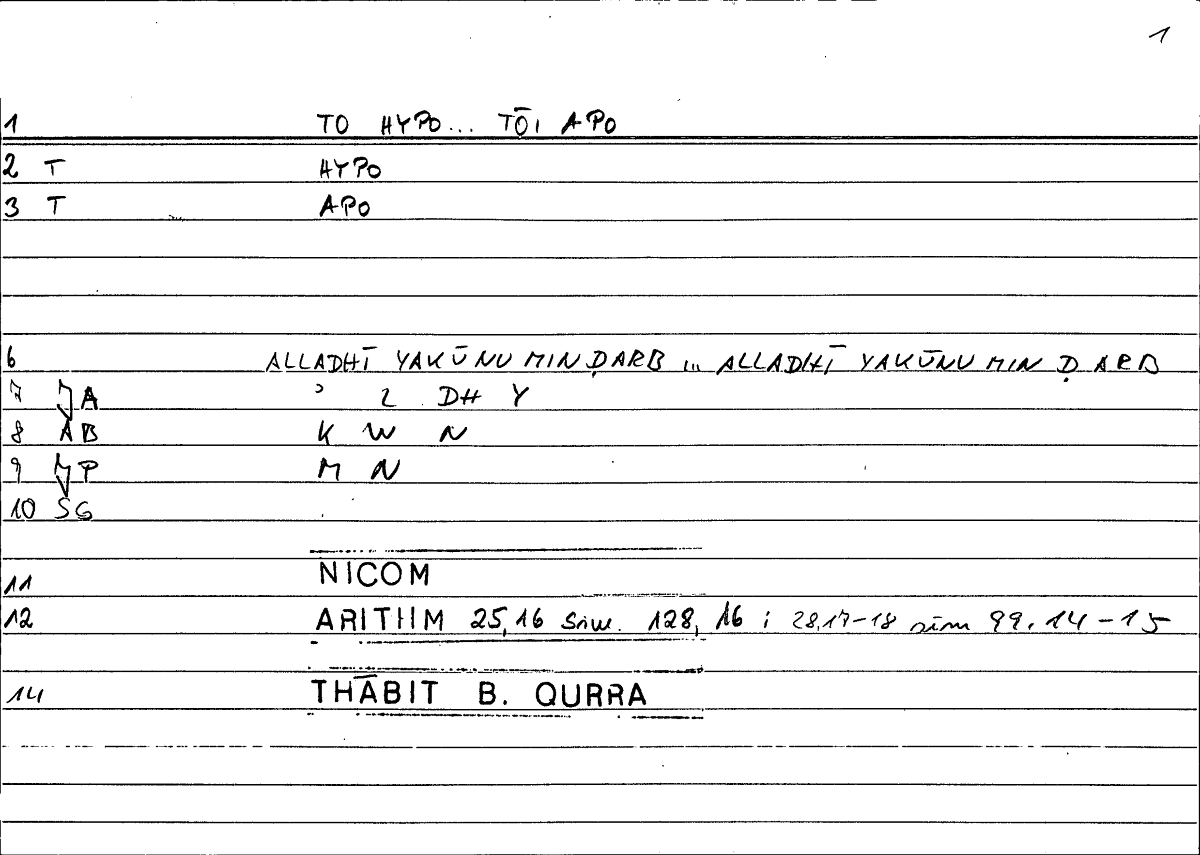 1
1 TO HYPO... TŌI APO
2 T HYPO
3 T APO
6 ALLADHĪ YAKŪNU MIN ḌARB ... ALLADHĪ YAKŪNU MIN ḌARB
7 A ʾ L DH Y
8 AB K W N
9 P M N
10 SG
11 NICOM
12 ARITHM 25,16 sim. 128, 16 ; 28,17-18 sim 99.14-15
14 THĀBIT B. QURRA